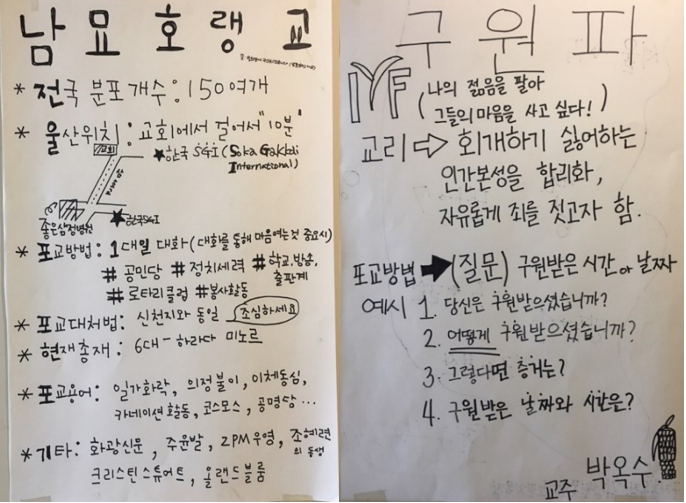 남묘호랭교
* 전국 분포 개수 : 150여개
* 울산위치 : 교회에서 걸어서 "10분"
교회
★한국 SGI (Soka Gakkai
International)
좋은삼정병원
★한국SGI
* 포교방법 : 1대일 대화 (대화를 통해 마음여는것 중요시)
# 공민당 # 정치세력 # 학교,방송,
출판계
# 로타리클럽 #봉사활동
* 포교대처법 : 신천지와 동일 조심하세요
* 현재총재 : 6대 - 하라다 미노르
* 포교용어 : 일가화락, 의정불이, 이체동심,
카네이션 활동, 코스모스, 공명당 ...
* 기타 : 화광신문, 주윤발, 2PM우영, 조혜련
의 동생
크리스틴스튜어트, 올랜드블룸
구원파
IYF
(나의 젊음을 팔아
그들의마음을 사고 싶다!)
교리 ⇨ 회개하기 싫어하는
인간본성을 합리화,
자유롭게 죄를 짓고자 함.
포교방법 ➡ (질문) 구원받은 시간 or 날짜
예시 1. 당신은 구원받으셨습니까?
2. 어떻게 구원받으셨습니까?
3. 그렇다면 증거는?
4. 구원받은 날짜와 시간은?
교주 박옥수